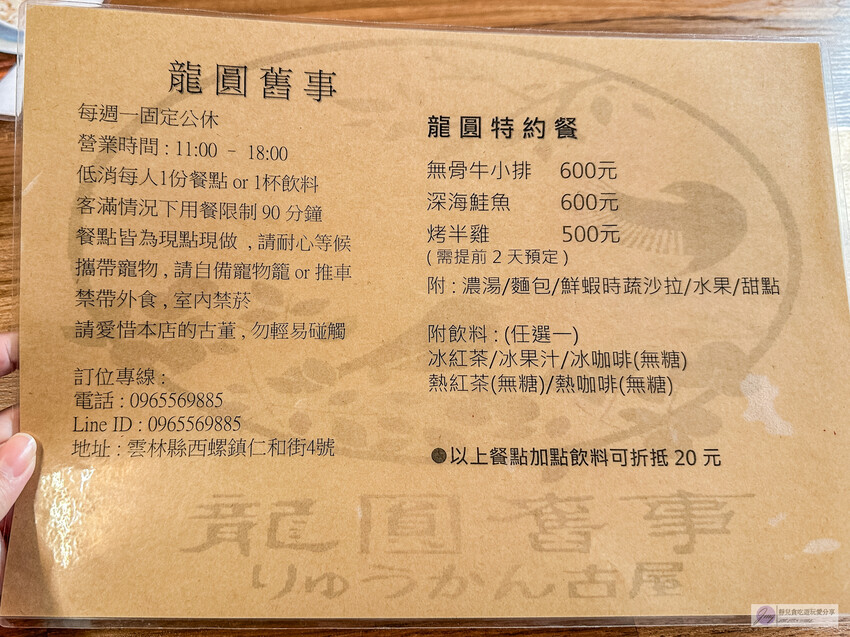 龍圓舊事
每週一固定公休
營業時間 : 11:00 - 18:00
低消每人1份餐點 or 1杯飲料
客滿情況下用餐限制 90 分鐘
餐點皆為現點現做 , 請耐心等候
攜帶寵物 , 請自備寵物籠 or 推車
禁帶外食 , 室內禁菸
請愛惜本店的古董 , 勿輕易碰觸
訂位專線 :
電話 : 0965569885
Line ID : 0965569885
地址 : 雲林縣西螺鎮仁和街4號
龍圓特約餐
無骨牛小排 600元
深海鮭魚 600元
烤半雞 500元
( 需提前 2 天預定 )
附 : 濃湯/麵包/鮮蝦時蔬沙拉/水果/甜點
附飲料 : (任選一)
冰紅茶/冰果汁/冰咖啡(無糖)
熱紅茶(無糖)/熱咖啡(無糖)
●以上餐點加點飲料可折抵 20 元
龍圓舊事
りゅうかん古屋
靜兒貪吃遊玩愛分享